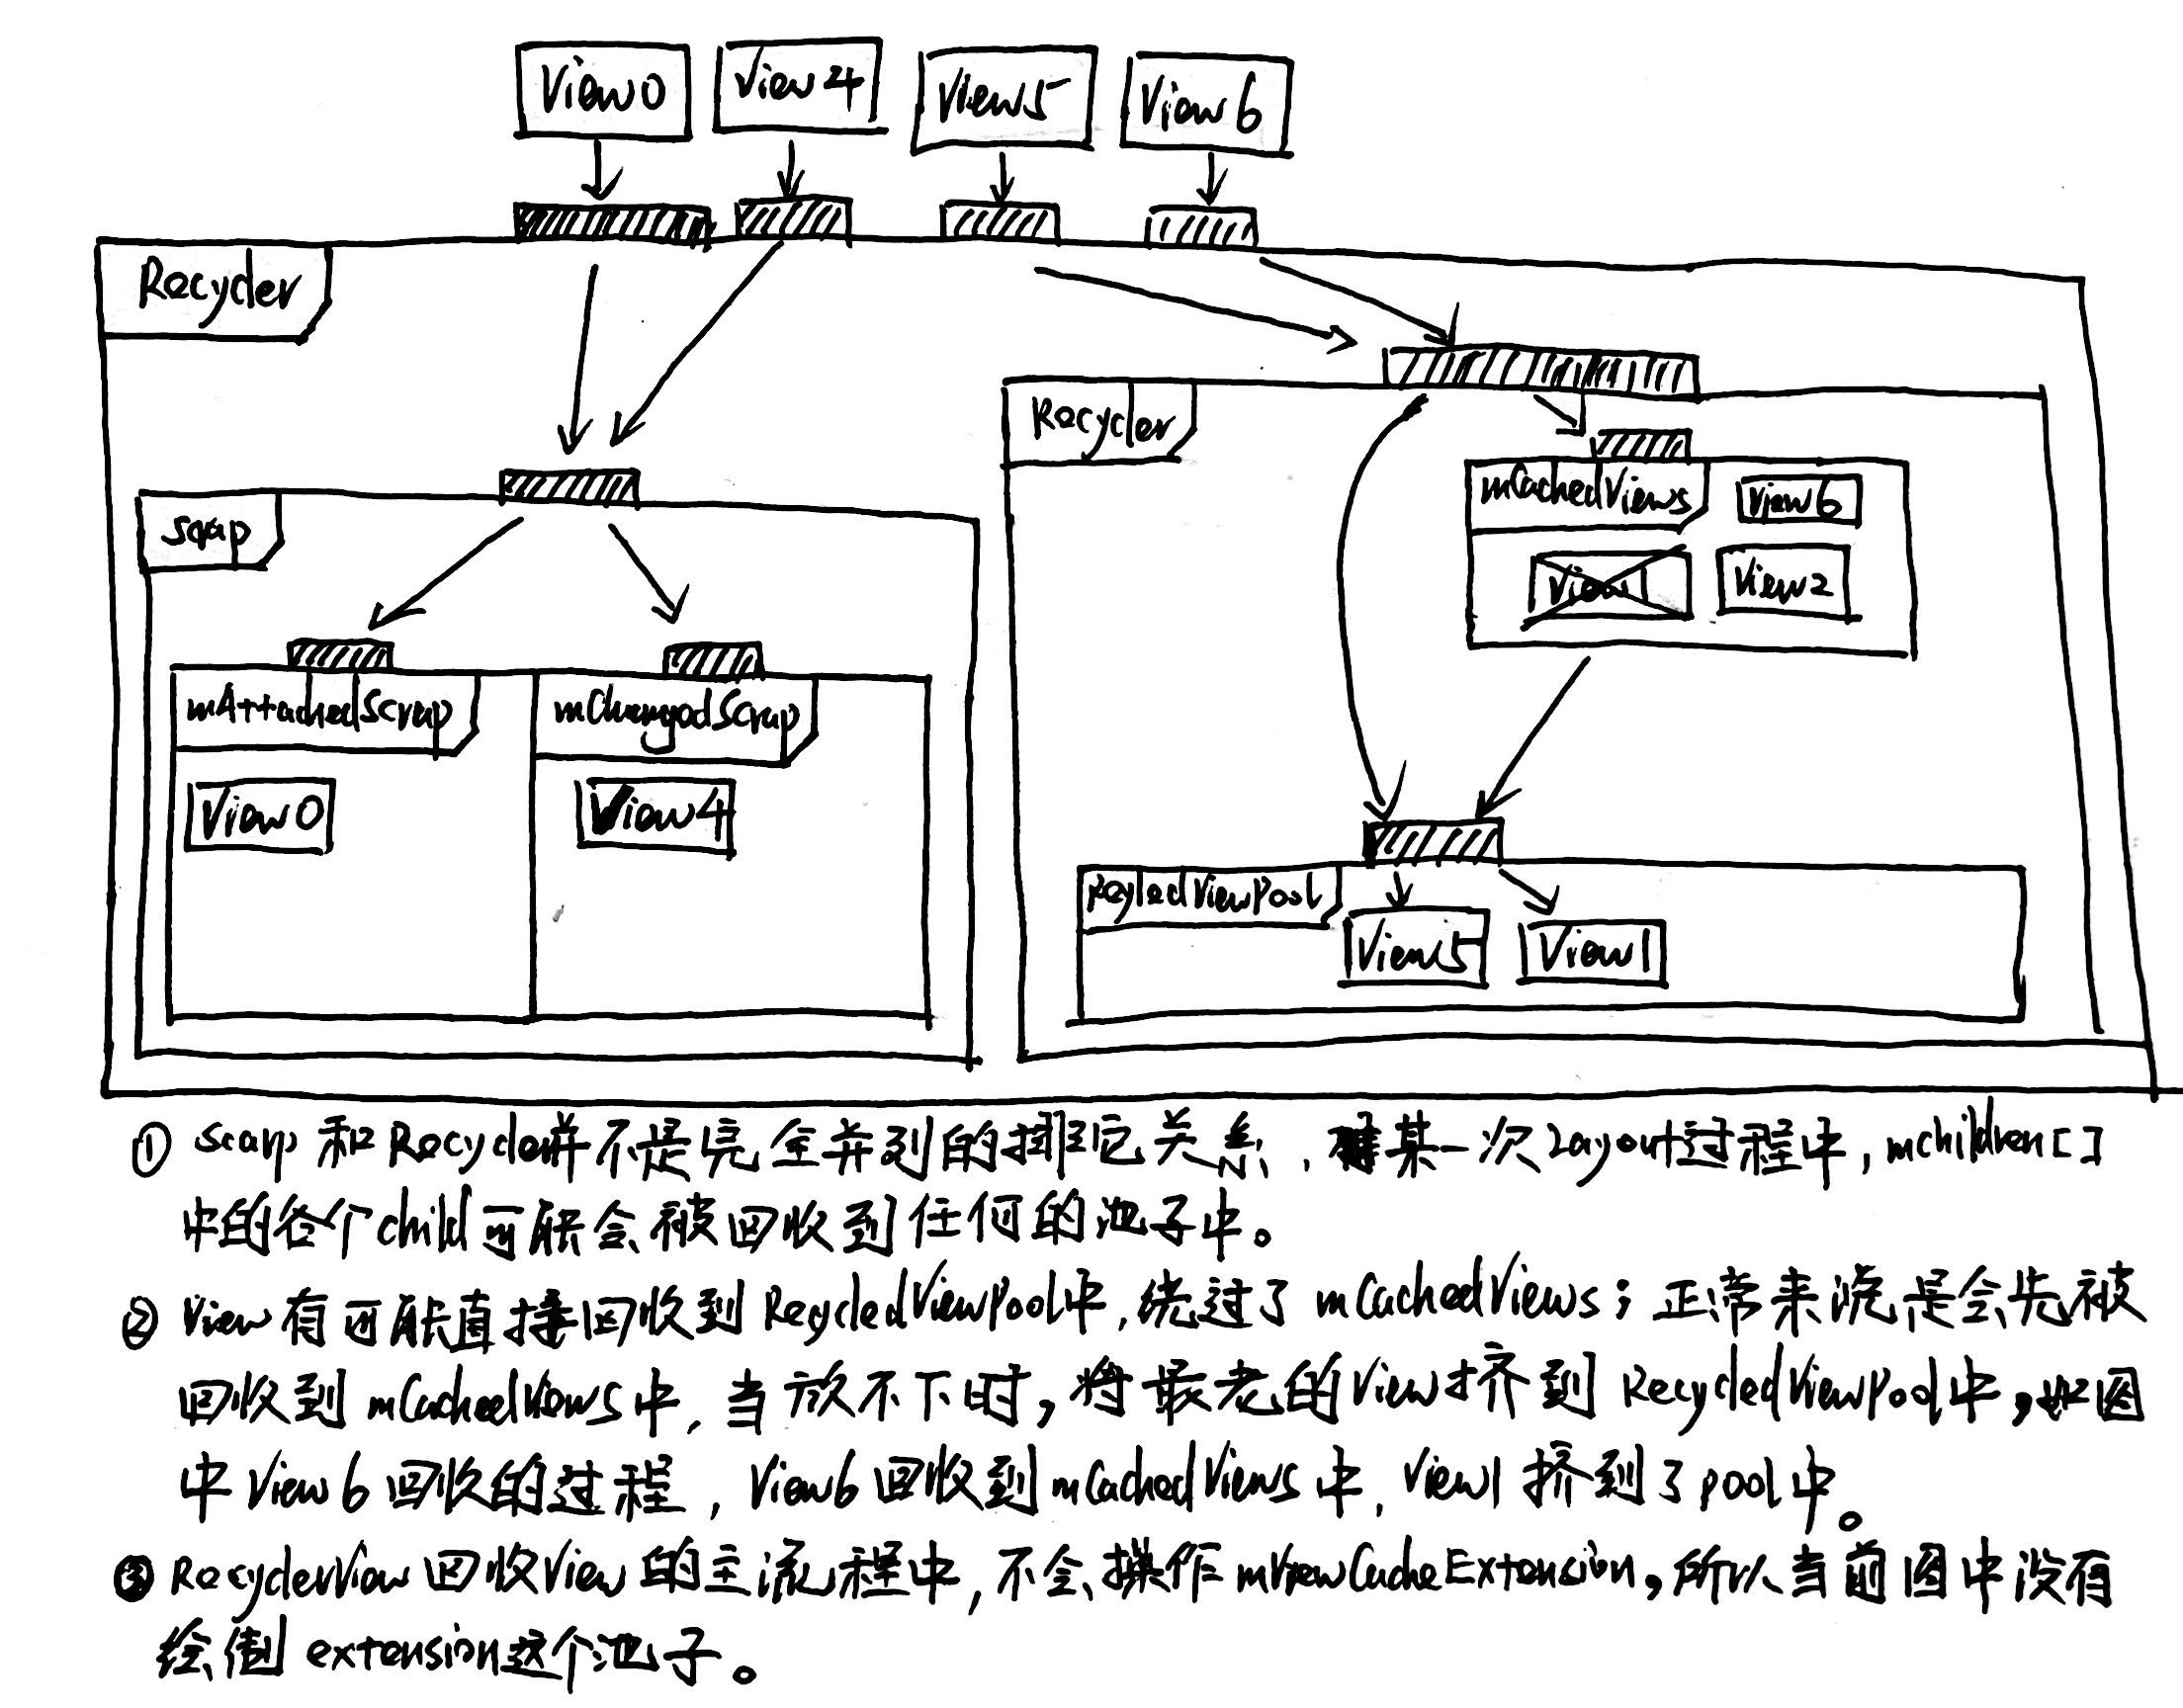 View0 View4 View5 View6
Recycler
Recycler
mCachedViews View6
scrap
View1 View2
mAttachedScrap mChangedScrap
View0 View4
RecyledViewPool
View5 View1
① scarp 和 Recycler并不是完全并列的排它关系，某一次Layout过程中，mchildren[]
中的各个child可能会被回收到任何的池子中。
② View有可能直接回收到RecycledViewPool中，绕过了mCachedViews；正常来说是会先被
回收到mCachedViews中，当放不下时，将最老的View挤到RecycledViewPool中，如图
中View6回收的过程，View6回收到mCachedViews中，View1挤到了pool中。
③ RecyclerView回收View的主流程中，不会操作mViewCacheExtension，所以当前图中没有
绘制extension这个池子。